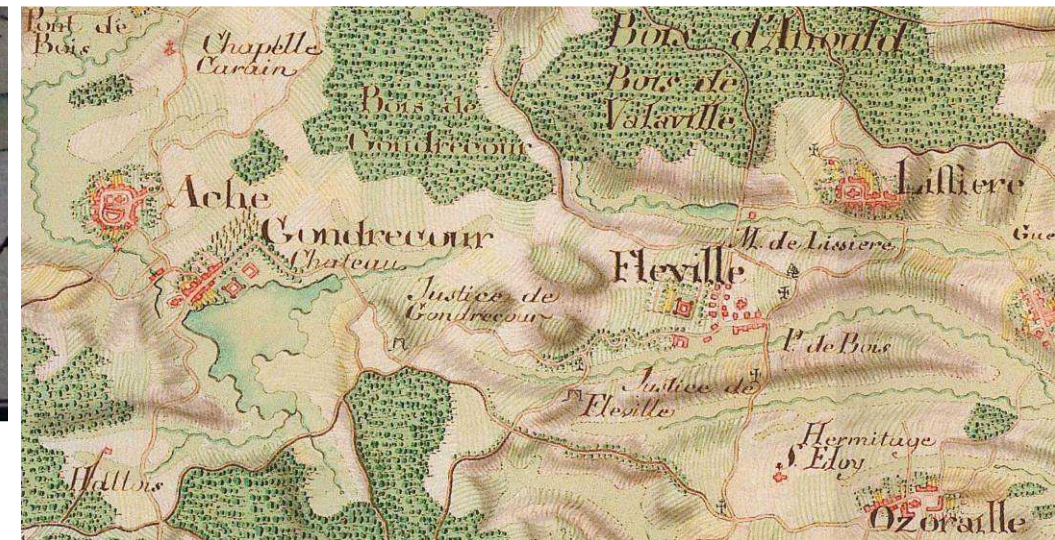 Pont de
Bois
Chapelle
Curain
Bois de
Gondrecour
Bois d'Anould
Bois de
Valaville
Lissiere
Ache
Gondrecour
Chateau
M. de Lissiere
Gue
Fleville
Justice de
Gondrecour
P. de Bois
Justice de
Fleville
Hallois
Hermitage
S. Eloy
Ozoraille